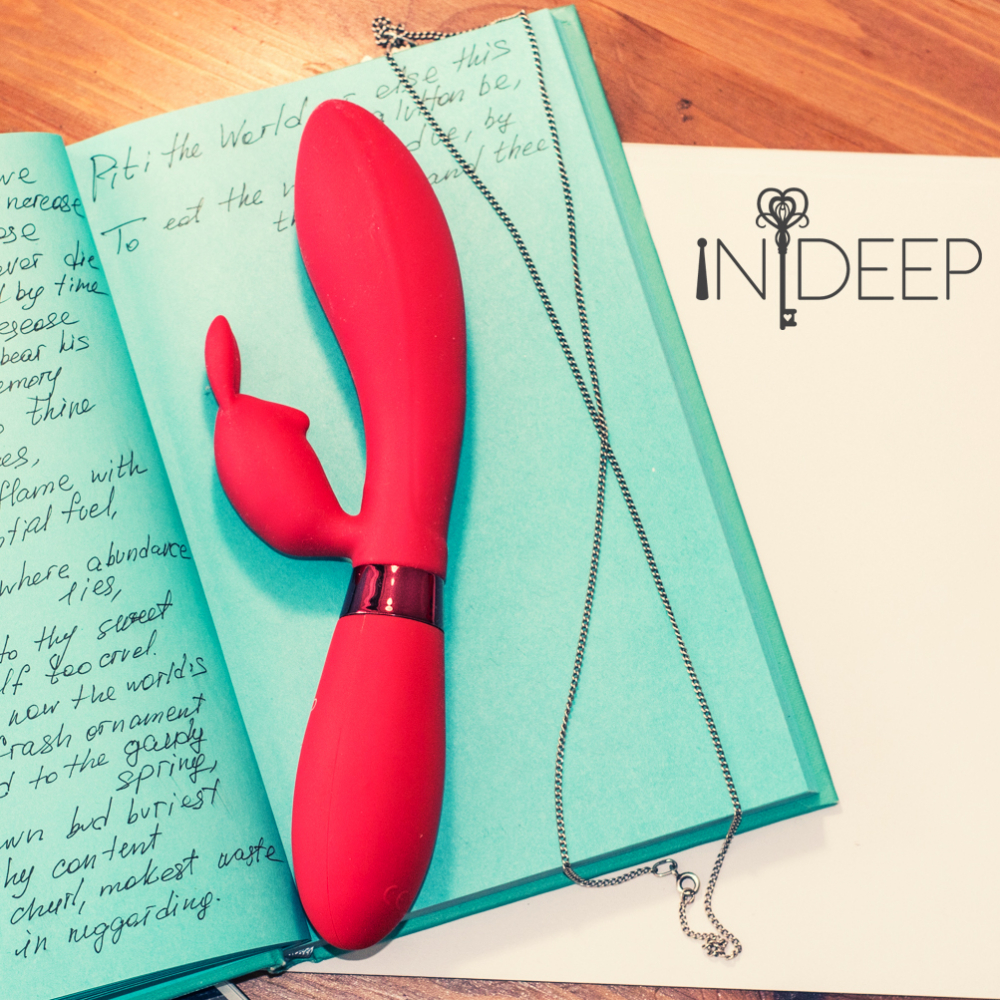 ve
nerease
ose
ever die
by time
esease
bear his
emory
thine
es,
flame with
tial fuel,
where abundance
lies,
to thy sweet
lf too cruel.
now the world's
frash ornament
d to the gaudy
spring,
wn bud buriest
hy content
churl, makest waste
in niggarding.
Piti the World else this
lutton be,
To eat the due, by
th and thee
INDEEP